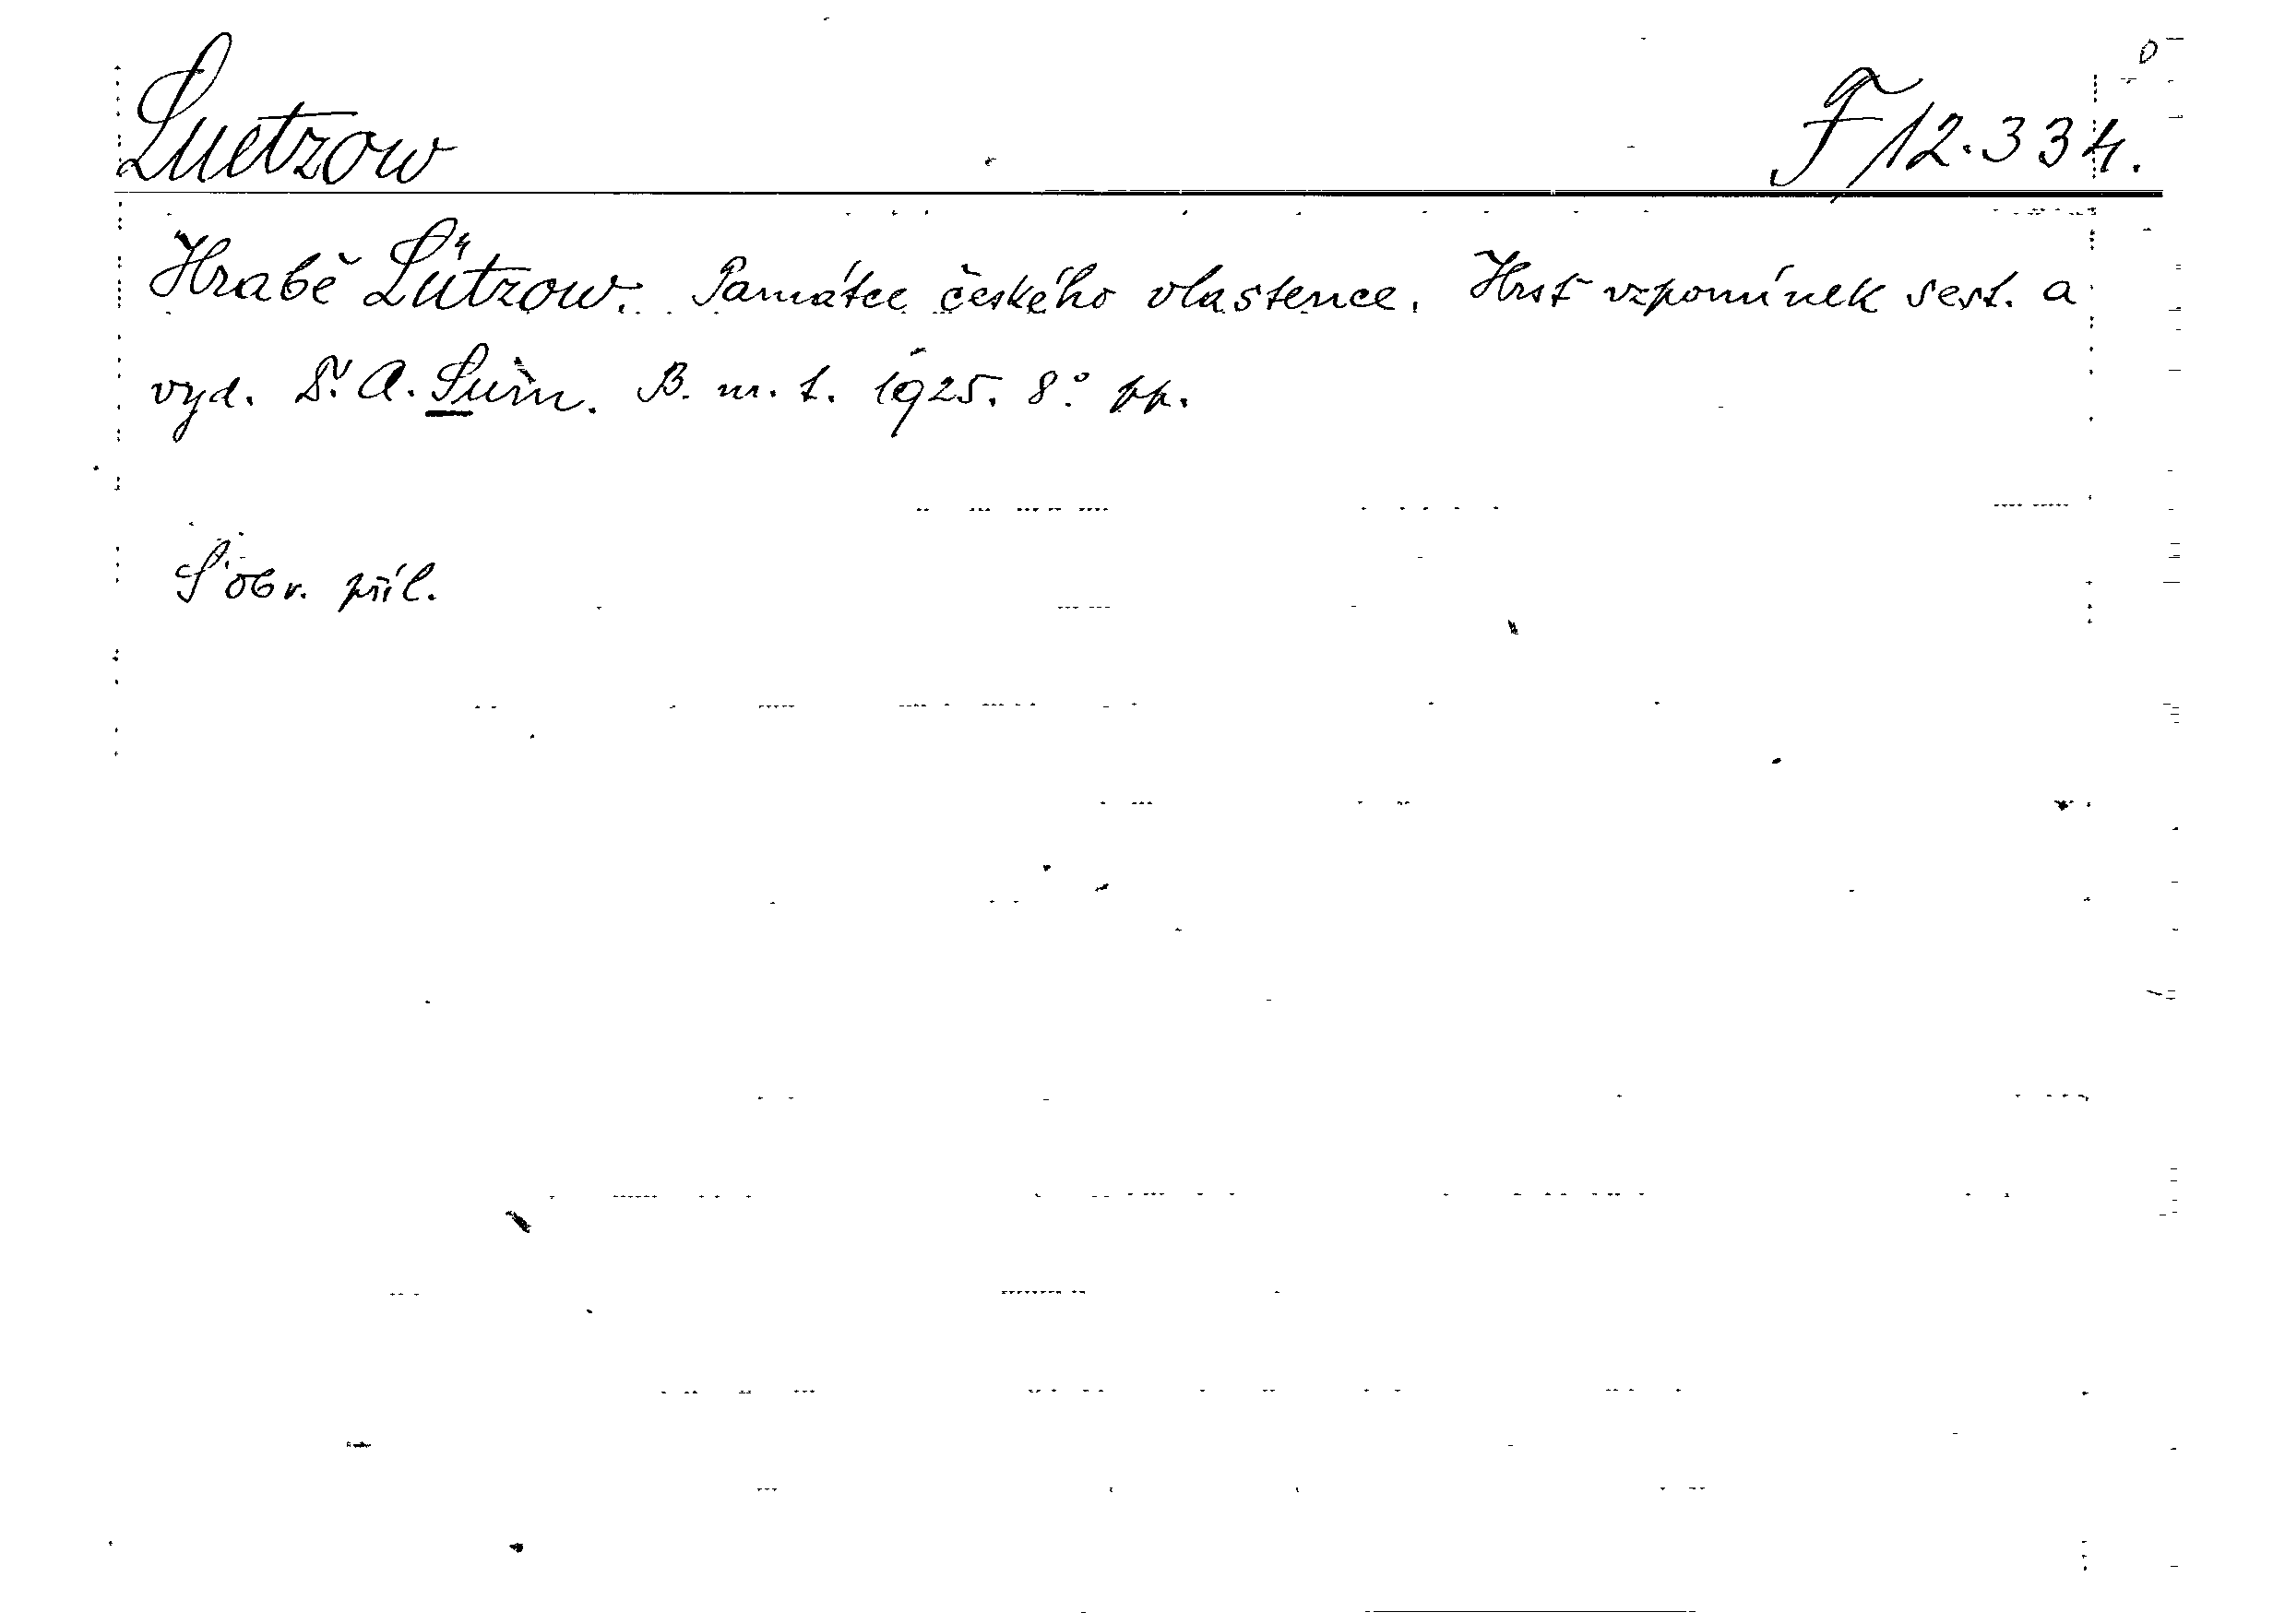 Luetzow F 12.334.
Hrabě Lützow. Památce českého vlastence. Hrsť vzpomínek sest. a
vyd. Dr. A. Šům. B. m. t. 1925. 8° pp.
S obr. příl.